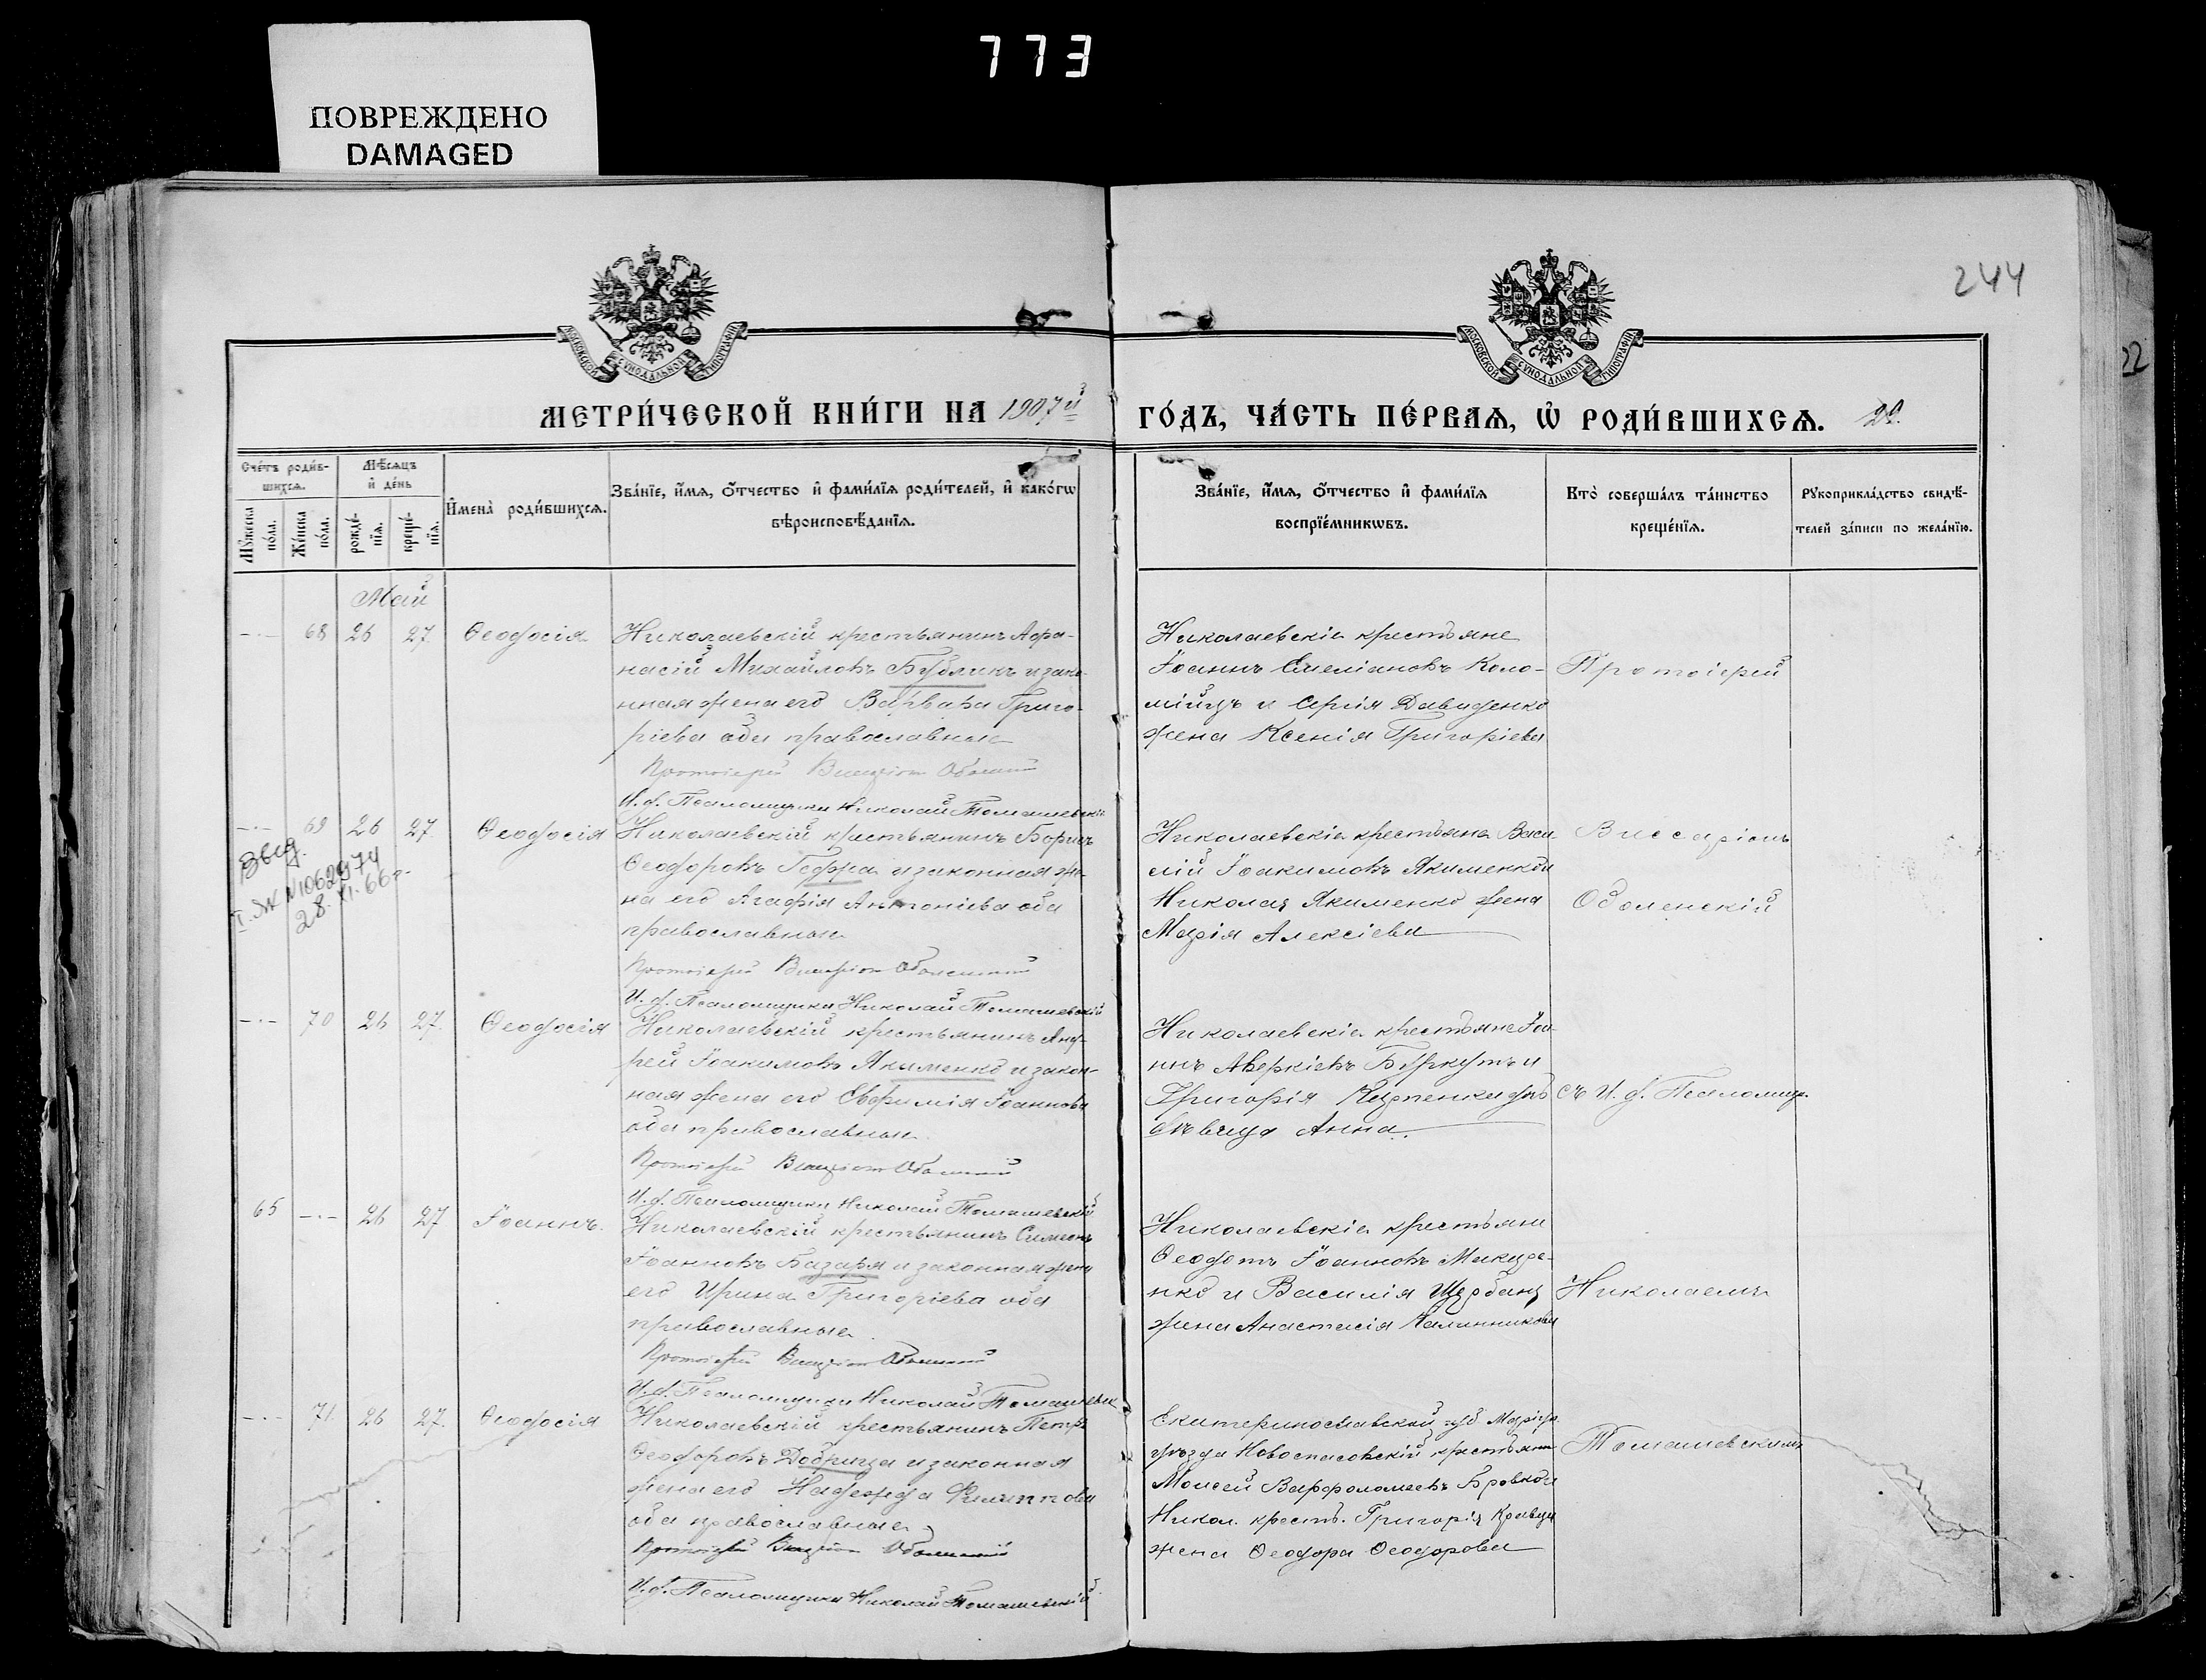 773
ПОВРЕЖДЕНО
DAMAGED
244
22
МОСКОВСКОЙ СѴНОДАЛЬНОЙ ТИПОГРАФІИ
МОСКОВСКОЙ СѴНОДАЛЬНОЙ ТИПОГРАФІИ
МЕТРИ́ЧЕСКОЙ КНИ́ГИ НА 1907й ГО́ДЪ, ЧА́СТЬ ПЕ́РВАѦ, Ѡ҆ РОДИ́ВШИХСѦ.
Сче́тъ роди́в-
шихсѧ.
Мѣ́сѧцъ
и҆ де́нь
Мꙋ́жеска по́ла.
Же́нска по́ла.
рожде́-нїѧ.
креще́-нїѧ.
И҆мена̀ роди́вшихсѧ.
Зва́нїе, и҆́мѧ, ѻ҆́тчество и҆ фами́лїѧ роди́телей, и҆ како́гѡ
вѣроисповѣ́данїѧ.
Зва́нїе, и҆́мѧ, ѻ҆́тчество и҆ фами́лїѧ
воспрїе́мникѡвъ.
Кто̀ соверша́лъ та́инство
креще́нїѧ.
Рꙋкоприкла́дство свидѣ́-
телей за́писи по жела́нїю.
Май
68 26 27 Ѳеодосія
Николаевскій крестьянинъ Аѳа-
насій Михайловъ Бубликъ и зако-
нная жена его Варвара Григо-
ріева оба православные
Протоіерей Виссаріонъ Оболенскій
И. д. Псаломщика Николай Томашевскій
Николаевскіе крестьяне
Іоаннъ Емеліановъ Коло-
мійцъ и Сергія Давиденко
жена Ксенія Григоріева
Протоіерей
69 26 27 Ѳеодосія
28. XI. 66 г.
Николаевскій крестьянинъ Борисъ
Ѳеодоровъ и законная же-
на его Агафія Антоніева оба
православные
Протоіерей Виссаріонъ Оболенскій
И. д. Псаломщика Николай Томашевскій
Николаевскіе крестьяне Васи-
лій Іоакимовъ Якименко и
Николая Якименко жена
Марія Алексіева
Виссаріонъ
Оболенскій
70 26 27 Ѳеодосія
Николаевскій крестьянинъ Анд-
рей Іоакимовъ Якименко и закон-
ная жена его Евфимія Іоаннова
оба православные
Протоіерей Виссаріонъ Оболенскій
И. д. Псаломщика Николай Томашевскій
Николаевскіе крестьяне Іоа-
ннъ Аверкіевъ Буркутъ и
Григорія Карпенка дочь
дѣвица Анна.
съ И. д. Псаломщ.
65 26 27 Іоаннъ.
Николаевскій крестьянинъ Симеонъ
Іоанновъ Базаря и законная жена
его Ирина Григоріева оба
православные
Протоіерей Виссаріонъ Оболенскій
И. д. Псаломщика Николай Томашевскій
Николаевскіе крестьяне
Ѳеодотъ Іоанновъ
и Василія Щербаня
жена Анастасія Калинникова
Николаемъ
71 26 27 Ѳеодосія
Николаевскій крестьянинъ Петръ
Ѳеодоровъ Добрица и законная
жена его Надежда Филиппова
оба православные
Протоіерей Виссаріонъ Оболенскій
И. д. Псаломщика Николай Томашевскій
Екатеринославской губ Маріуп.
уѣзда Новоспасовскій крестьянинъ
Моисей Варѳоломеевъ Бровко и
Никол. крестъ. Григорія Кравца
жена Ѳеодора Ѳеодорова
Томашевскимъ